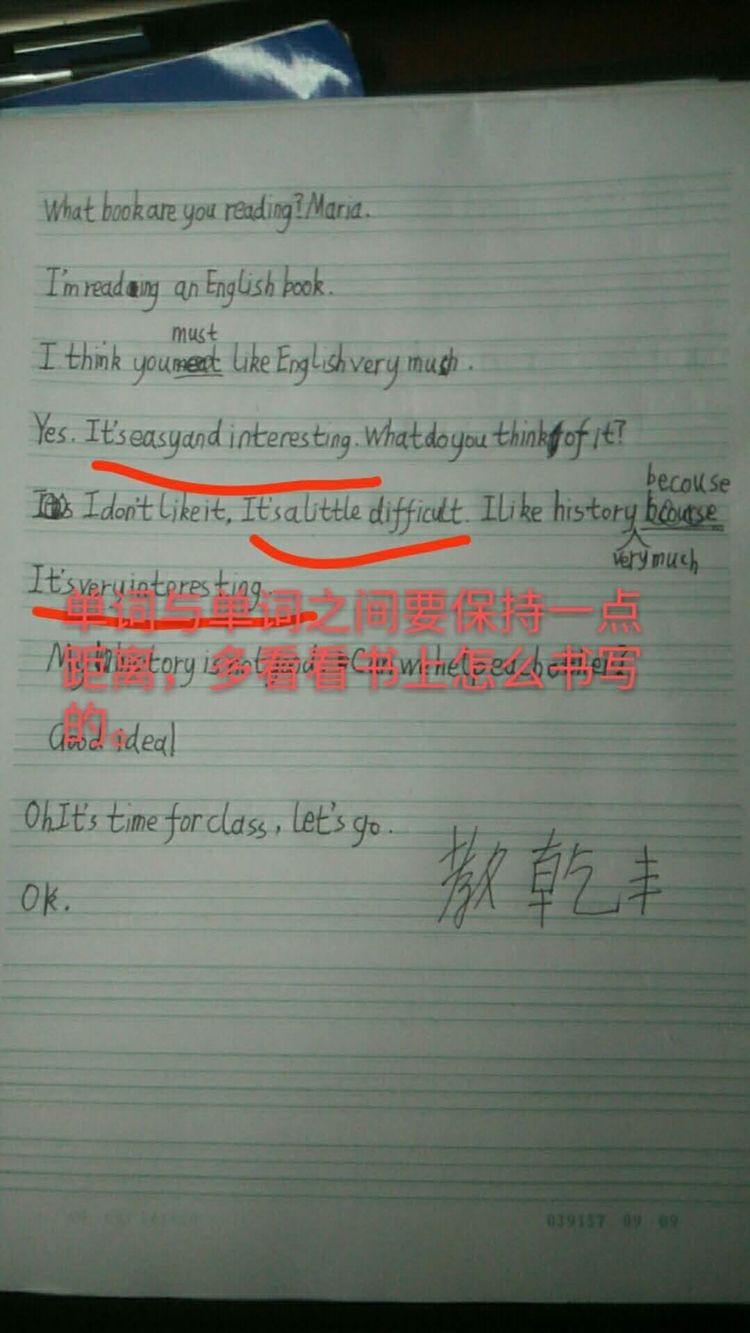 What book are you reading? Maria.
I'm reading an English book.
must
I think you like English very much.
Yes. It's easy and interesting. What do you think of it?
becouse
I don't like it, It's a little difficult. I like history bcouse
very much
It's very interesting.
单词与单词之间要保持一点
My history is not good. Can we help each other?
距离，多看看书上怎么书写
的。
Good idea!
Oh It's time for class, let's go.
OK.
乾丰
039157 09 09